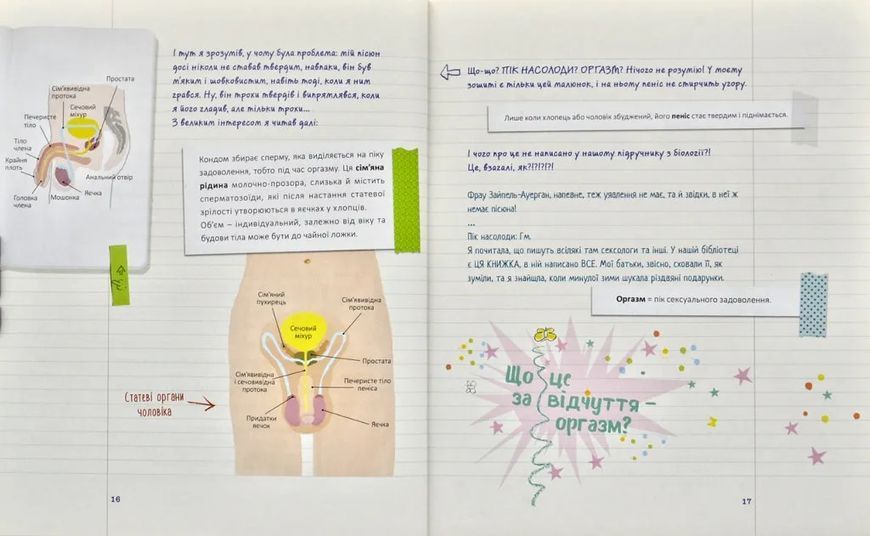 Простата
Сім'явивідна
протока
Сечовий
міхур
Печеристе
тіло
Тіло
члена
Крайня
плоть
Анальний отвір
Головка
члена
Мошонка
Яєчка
І тут я зрозумів, у чому була проблема: мій пісюн
досі ніколи не ставав твердим, навпаки, він був
м'яким і шовковистим, навіть тоді, коли я ним
грався. Ну, він трохи твердів і випрямлявся, коли
я його гладив, але тільки трохи...
З великим інтересом я читав далі:
Кондом збирає сперму, яка виділяється на піку
задоволення, тобто під час оргазму. Ця сім'яна
рідина молочно-прозора, слизька й містить
сперматозоїди, які після настання статевої
зрілості утворюються в яєчках у хлопців.
Об'єм – індивідуальний, залежно від віку та
будови тіла може бути до чайної ложки.
Сім'яний
пухирець
Сім'явивідна
протока
Сечовий
міхур
Простата
Сім'явивідна
і сечовивідна
протока
Печеристе тіло
пеніса
Придатки
яєчок
Яєчка
Статеві органи
чоловіка
16
Що-що? ПІК НАСОЛОДИ? ОРГАЗМ? Нічого не розумію! У моєму
зошиті є тільки цей малюнок, і на ньому пеніс не стирчить угору.
Лише коли хлопець або чоловік збуджений, його пеніс стає твердим і піднімається.
І чого про це не написано у нашому підручнику з біології?!
Це, взагалі, як?!?!?!
Фрау Зайпель-Ауерган, напевне, теж уявлення не має, та й звідки, в неї ж
немає пісюна!
...
Пік насолоди: Гм.
Я почитала, що пишуть всілякі там сексологи та інші. У нашій бібліотеці
є ЦЯ КНИЖКА, в ній написано ВСЕ. Мої батьки, звісно, сховали її, як
зуміли, та я знайшла, коли минулої зими шукала різдвяні подарунки.
Оргазм = пік сексуального задоволення.
Що це
за відчуття –
оргазм?
17